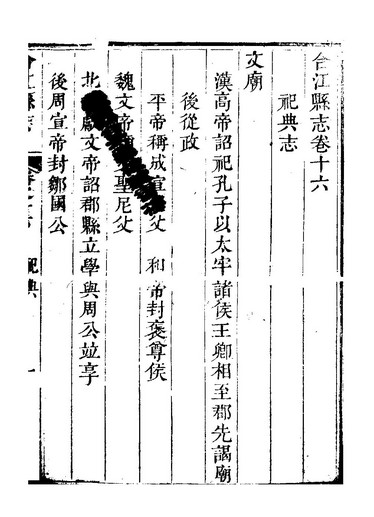 合江縣志卷十六
祀典志
文廟
漢高帝詔祀孔子以太牢諸侯王卿相至郡先謁廟
後從政
平帝稱成宣父 和帝封褒尊侯
魏文帝聖尼父
北文帝詔郡縣立學與周公並享
後周宣帝封鄒國公
祀典
一